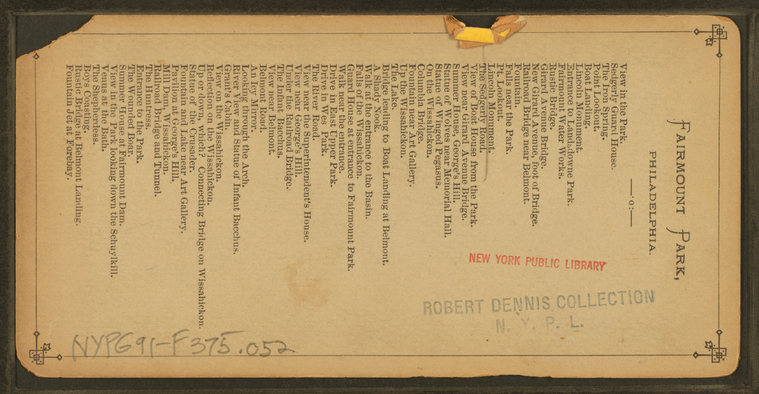 FAIRMOUNT PARK,
PHILADELPHIA.
—:o:—
View in the Park.
Sedgerly Guard House.
The Iron Spring.
Point Lookout.
Boat Landing.
Lincoln Monument.
Entrance to Landsdowne Park.
Fairmount Water Works.
Rustic Bridge.
Girard Avenue Bridge.
New Girard Avenue, foot of Bridge.
Railroad Bridge near Belmont.
Fountain.
Falls near the Park.
Pt. Lookout.
Lincoln Monument.
The Sedgerly Road.
View of Boat House from the Park.
View near Girard Avenue Bridge.
Summer House, George's Hill.
Statue of Wolves near Memorial Hall.
Statue of Winged Pegasus.
On the Wissahickon.
Columbia Bridge.
Fountain near Art Gallery.
Up the Wissahickon.
The Lake.
Bridge leading to Boat Landing at Belmont.
A Shady Nook.
Walk at the entrance to the Basin.
Falls of the Wissahickon.
Guard House at entrance to Fairmount Park.
Walk near the entrance.
Drive in East Upper Park.
Drive in West Park.
The River Road.
View near the Superintendent's House.
View near St. George's Hill.
Under the Railroad Bridge.
The Infant Bacchus.
View near Belmont.
An Icy Mirror.
Belmont Road.
Looking through the Arch.
River View and Statue of Infant Bacchus.
Grant's Cabin.
View on the Wissahickon.
Reflection on the Wissahickon.
Up or down, which? Connecting Bridge on Wissahickon.
Statue of the Crusader.
Fountain and Lake near Art Gallery.
Pavilion at George's Hill.
Mill Dam, Wissahickon.
Railroad Bridge and Tunnel.
The Huntress.
Entrance to the Park.
The Wounded Boar.
Summer House at Fairmount Dam.
View in the Park, looking down the Schuylkill.
Venus at the Bath.
The Shepherdess.
Boys Coasting.
Rustic Bridge at Belmont Landing.
Fountain Jet at Forebay.
NEW YORK PUBLIC LIBRARY
ROBERT DENNIS COLLECTION
N. Y. P. L.
NYPG91-F375.052